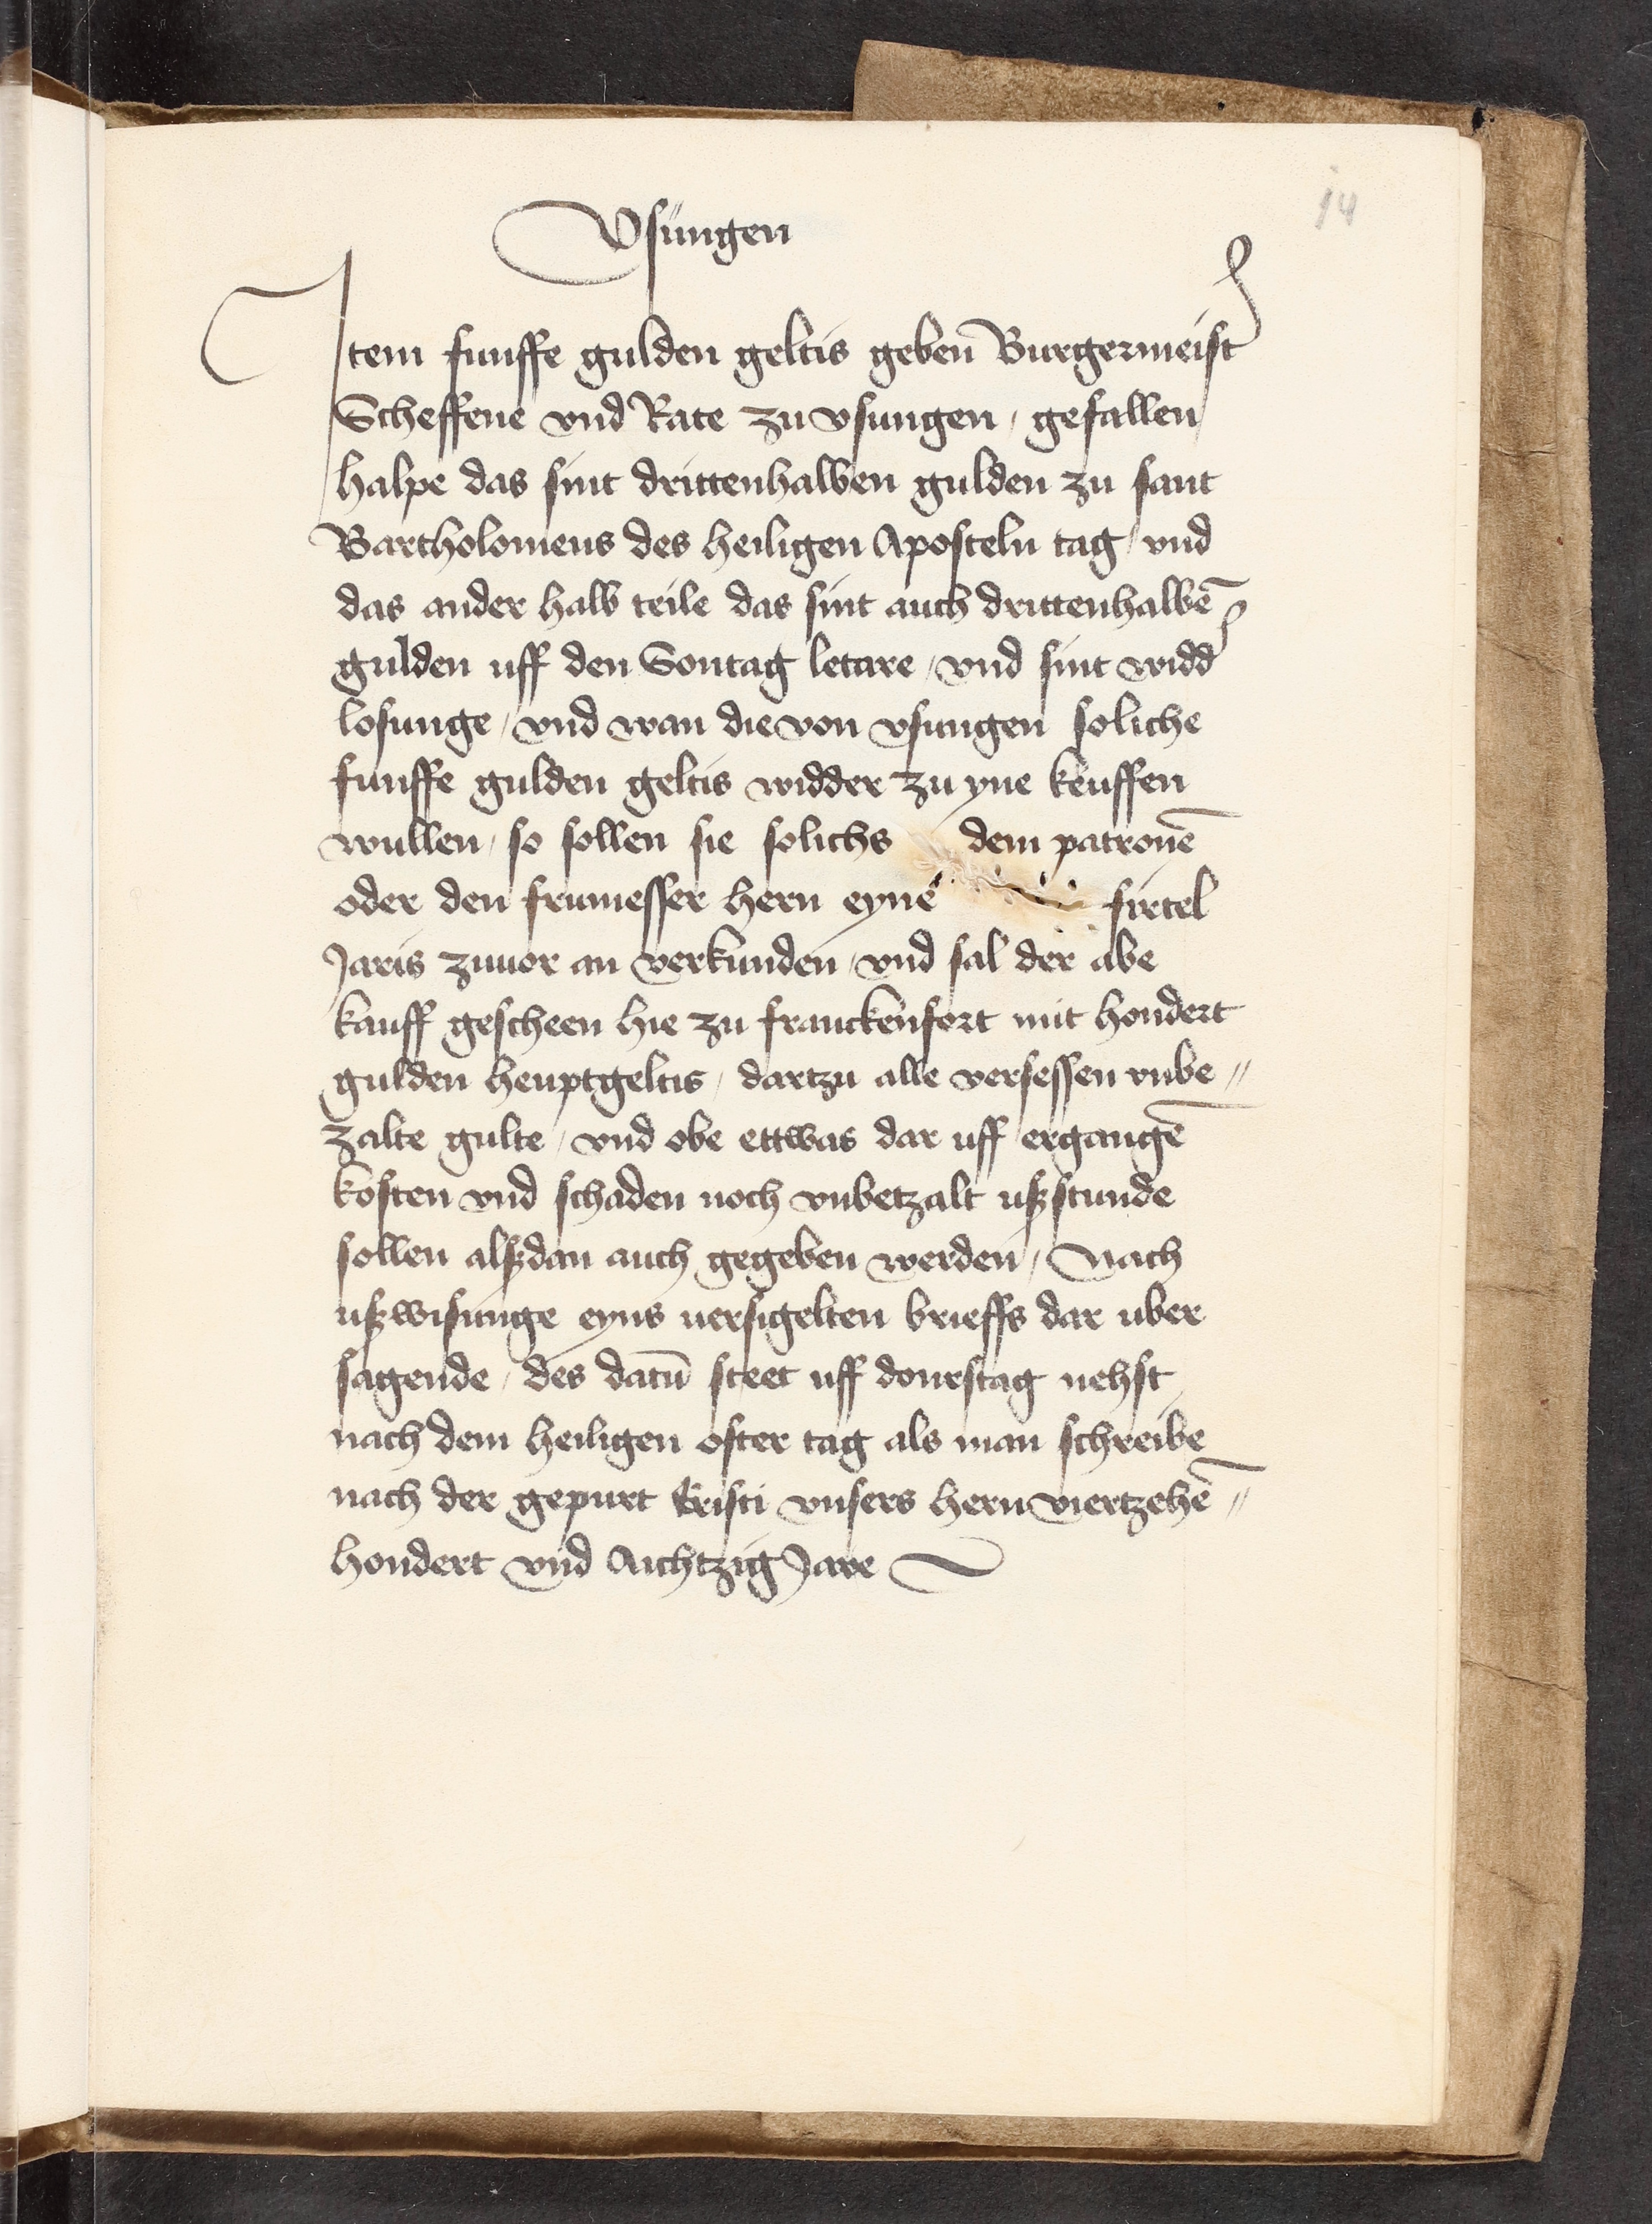 14
Vsungen
Item funffe gulden geltis geben Burgermeist
Scheffene vnd Rate zu vsungen / gefallen
halpe das sint drittenhalben gulden zu sant
Bartholomeus des heiligen Aposteln tag / vnd
das ander halb teile das sint auch drittenhalbē
gulden uff den Sontag letare / vnd sint widd
losunge / vnd wan die von vsungen soliche
funffe gulden geltis widder zu yne keuffen
wullen / so sollen sie solichs dem patronē
oder den frumesser hern eynē firtel
Jaris zuuor an verkunden / vnd sal der abe
kauff gescheen hie zu franckenfort mit hondert
gulden heuptgeltis / dartzu alle versessen vnbe //
zalte gulte / vnd obe ettwas dar uff ergangē
kosten vnd schaden noch vnbetzalt ußstunde
sollen alßdan auch gegeben werden / Nach
ußwisunge eyns uersigelten brieffs dar uber
sagende / des datū steet uff donrstag nehst
nach dem heiligen oster tag als man schreibe
nach der gepurt Cristi vnsers hern viertzehē //
hondert vnd Achtzig Jare